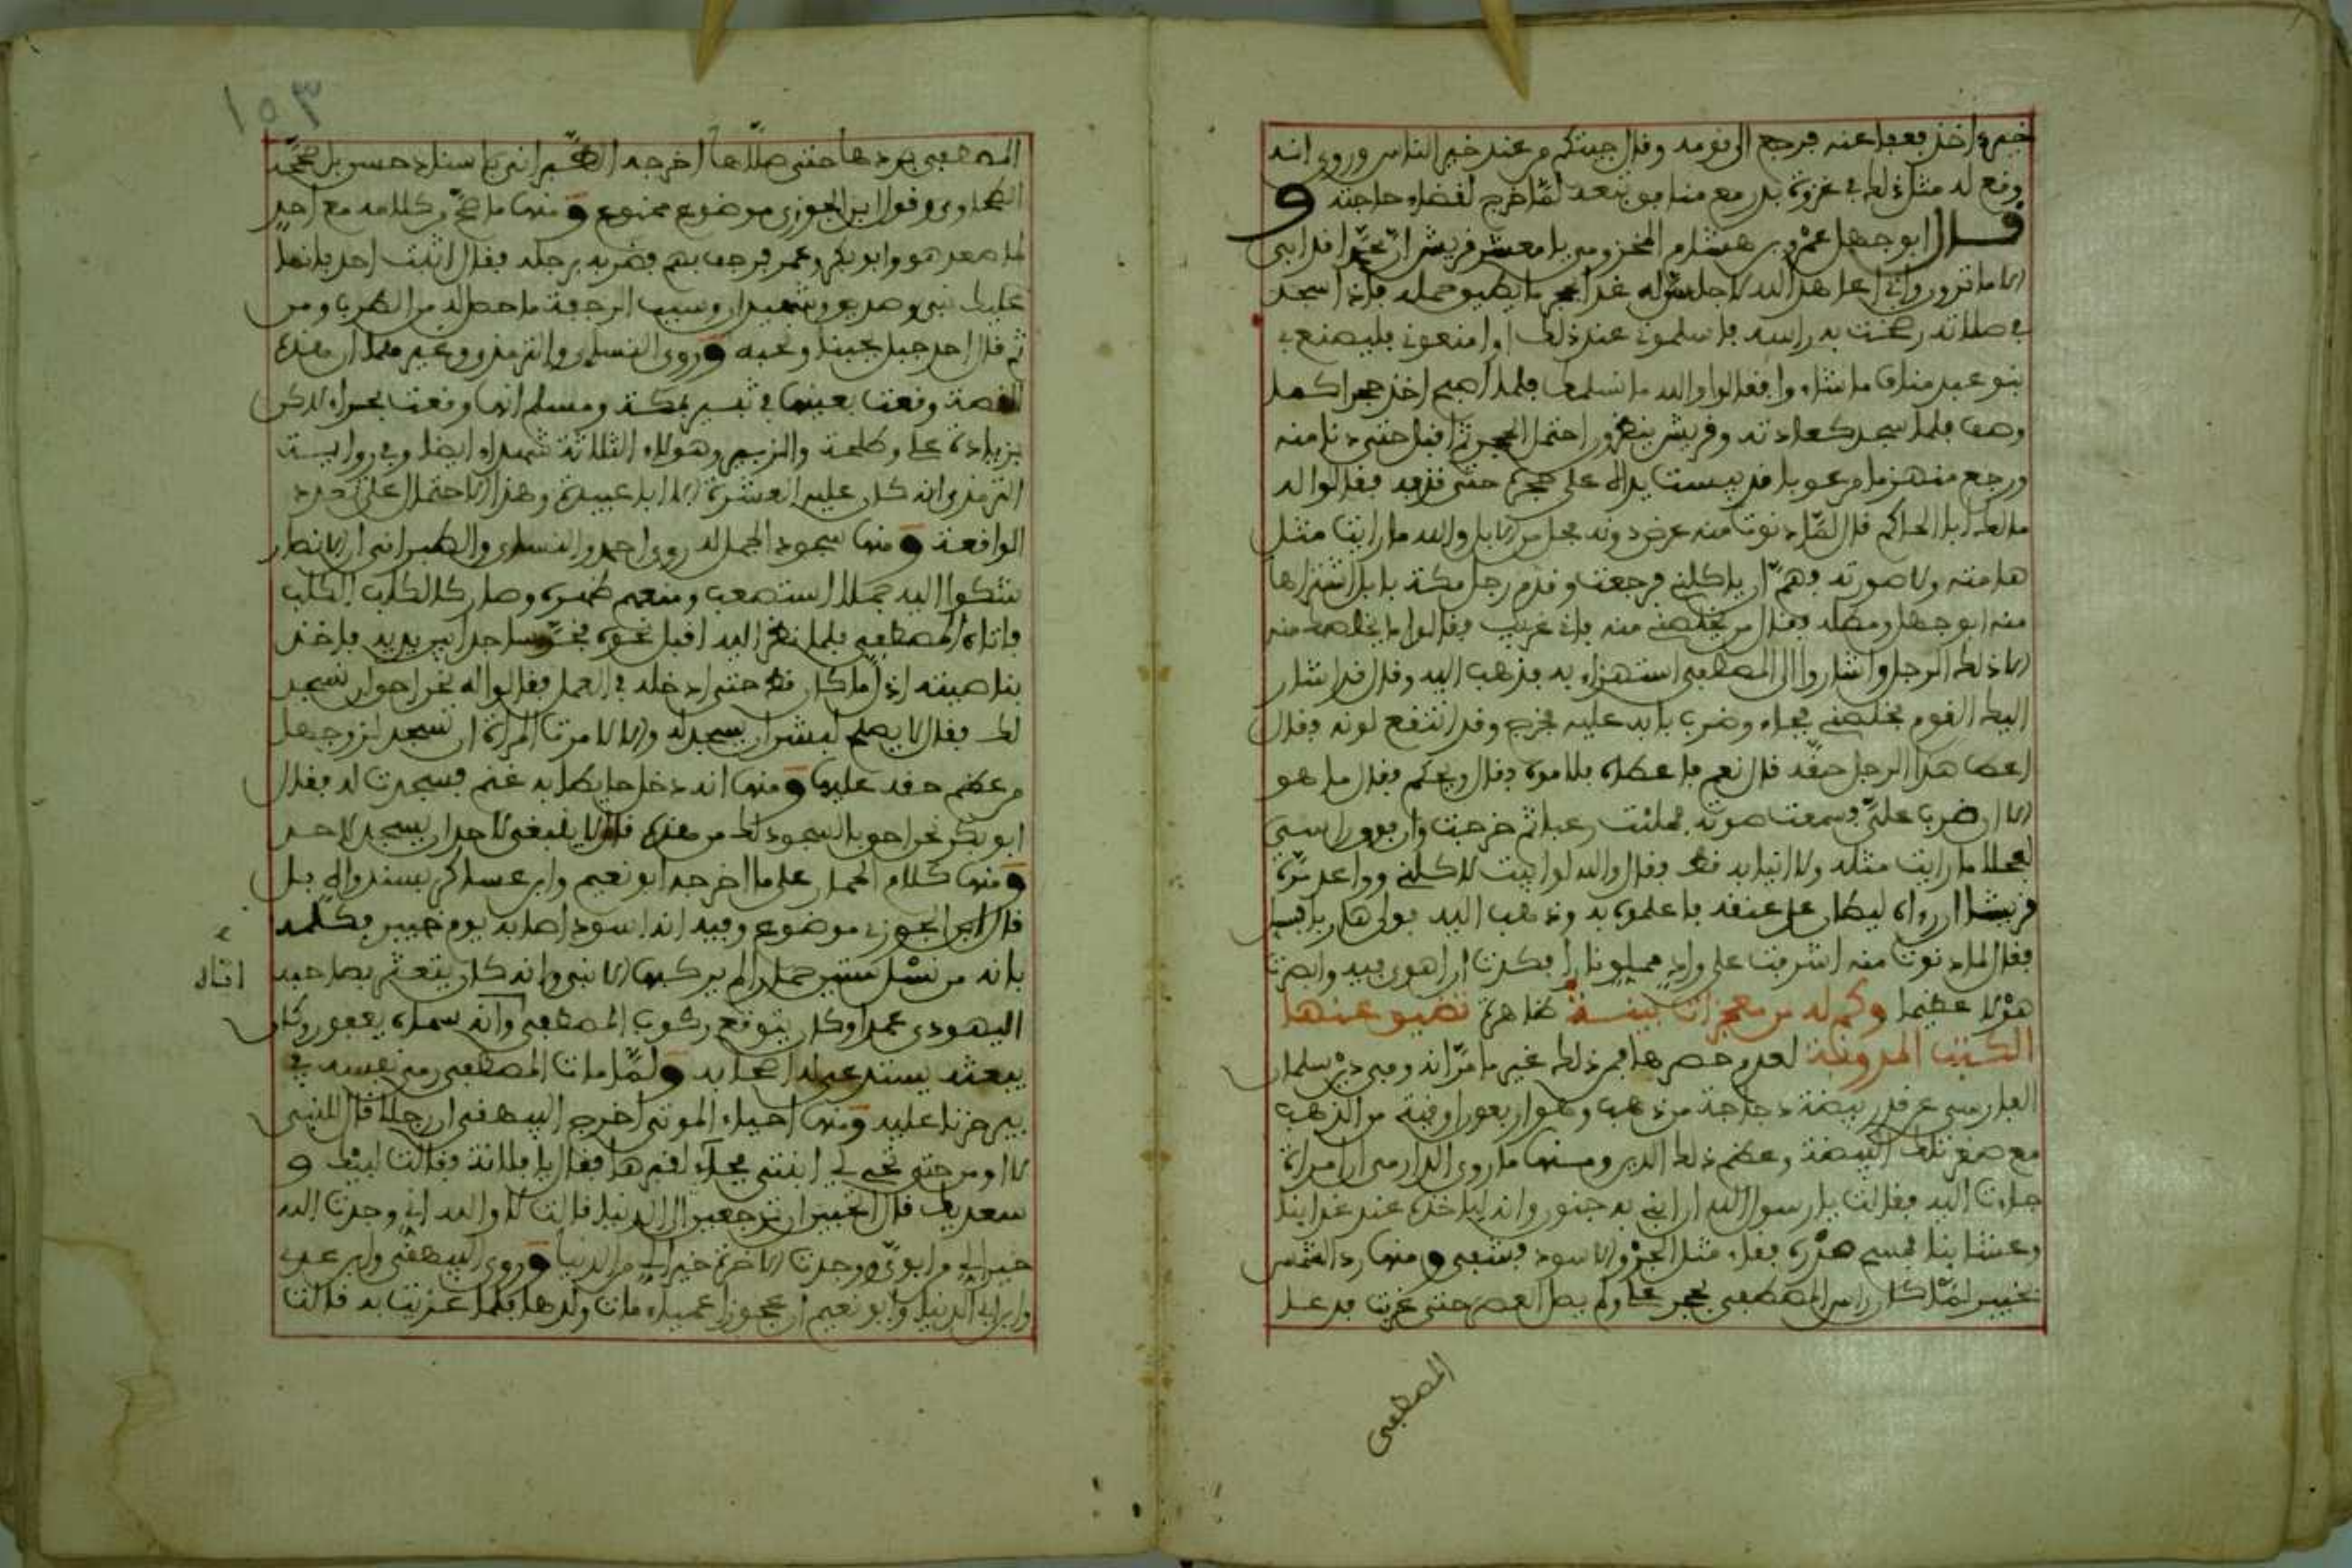 خيره اخذ بعفا عنه فرجع الى قومه وقال جيتكم من عند خير الناس وروى انه
وقع له مثل ذلك في غزوة بدر مع منافق تبعه لما خرج لقضاء حاجته و
قال ابو جهل عمرو بن هشام المخزومي يا معشر قريش ان محمدا قد ابى
الا ما ترون واني اعاهد الله لاجلس له غدا بحجر ما يطيق حمله فاذا سجد
في صلاته رضخت به راسه فاسلموني عند ذلك او امنعوني فليصنع بي
بنو عبد مناف ما شاءوا فقالوا والله ما نسلمك فلما اصبح اخذ حجرا كما
وصف فلما سجد كعادته وقريش ينظرون احتمل الحجر ثم اقبل حتى دنا منه
ورجع منهزما مرعوبا قد يبست يداه على حجره حتى قذفه فقالوا له
مالك ابا الحاكم قال لما دنوت منه عرض دونه فحل من الابل والله ما رايت مثل
هامته ولا صورته فهم ان ياكلني فرجعت وقدم رجل مكة بابل اشتراها
منه ابو جهل ومطله فقال من يخلصني منه فاني غريب فقالوا ما يخلصك منه
الا ذلك الرجل واشاروا الى المصطفى استهزاء به فذهب اليه وقال قد اشار
اليك القوم تخلصني فجاء وضرب بابه عليه فخرج وقد انتقع لونه فقال
اعط هذا الرجل حقه قال نعم فاعطاه فلاموه فقال ويحكم فقال ما هو
الا ان ضرب علي فسمعت صوته فملئت رعبا ثم خرجت وان فوق راسي
لفحلا ما رايت مثله ولا انيابه قط فقال والله لو ابيت لاكلني وواعد مرة
قريشا ان رواه ليطان على عنقه فاعلموه به وذهب اليه فولى هاربا فيه
فقال لما دنوت منه اشرفت على واد مملو نارا فكدت ان اهوي فيه وابصرت
هولا عظيما وكم له من معجزات بينة ظاهرة تضيق عنها
الكتب المدونة لعدم حصرها فمن ذلك غير ما مر انه وفى دين سلمان
الفارسي عن قدر بيضة دجاجة من ذهب وهو اربعون اوقية من الذهب
مع صغر تلك البيضة وعظم ذلك الدين ومنها ما روى الدارمي ان امراة
جاءت اليه فقالت يا رسول الله ان ابني به جنون وانه لياخذه عند غداينا
وعشاينا فمسح صدره فقاء مثل الجرو الاسود فشفي ومنها رد الشمس
بخيبر لما كان راس المصطفى بحجر علي ولم يصل العصر حتى غربت فدعا
المصطفى
١٥٣
المصطفى بردها حتى صلاها اخرجه الطبراني باسناد حسن بل صححه
الطحاوي وقول ابن الجوزي موضوع ممنوع ومنها ما صح وكلامه مع احد
لما صعد هو وابو بكر وعمر فرجف بهم فضربه برجله فقال اثبت احد فانما
عليك نبي وصديق وشهيدان وسبب الرجفة ما حصل له من الطرب ومن
ثم قال احد جبل يحبنا ونحبه وروى النساي والترمذي وغيرهما ان هذه
القصة وقعت بعينها في ثبير بمكة ومسلم انها وقعت بحراء لكن
بزيادة علي وطلحة والزبير وهولاء الثلاثة شهداء ايضا وفي رواية
الترمذي انه كان عليه العشرة الا ابا عبيدة وهذا الاحتمال على تعدد
الواقعة ومنها سجود الجمل له روى احمد والنساي والطبراني ان الانصار
شكوا اليه جملا استصعب ومنعهم ظهره وصار كالكلب الكلب
فاتاه المصطفى فلما نظر اليه اقبل نحوه فخر ساجدا بين يديه فاخذ
بناصيته اذل ما كان قط حتى ادخله في العمل فقالوا له نحن احق ان نسجد
لك فقال لا يصلح لبشر ان يسجد له والا لامرت المراة ان تسجد لزوجها
من عظم حقه عليها ومنها انه دخل حايطا به غنم فسجدت له فقال
ابو بكر نحن احق بالسجود لك من هذه قال لا ينبغي لاحد ان يسجد لاحد
ومنها كلام الحمار على ما اخرجه ابو نعيم وابن عساكر بسند واه بل
قال ابن الجوزي موضوع وفيه انه اسود اصابه يوم خيبر فكلمه
بانه من نسل ستين حمارا لم يركبها الا نبي وانه كان يتعثر بصاحبه
اتاه
اليهودي عمدا وكان يتوقع ركوب المصطفى وانه سماه يعفور وكان
يبعثه يستدعي له اصحابه ولما مات المصطفى رمى نفسه في
بير حزنا عليه ومنها احياء الموتى اخرج البيهقي ان رجلا قال للنبي
لا اومن حتى تحيي لي ابنتي فجاء لقبرها فقال يا فلانة فقالت لبيك و
سعديك قال اتحبين ان ترجعين الى الدنيا قالت لا والله اني وجدت الله
خيرا لي من ابوي ووجدت الاخرة خيرا لي من الدنيا وروى البيهقي وابن عدي
وابن ابي الدنيا وابو نعيم ان عجوزا عمياء مات ولدها فلما عزيت به قالت